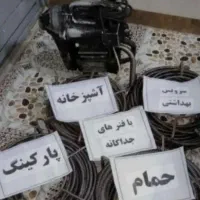 آشپزخانه
سرویس
بهداشتی
با فنر های
جداگانه
پارکینگ
حمام